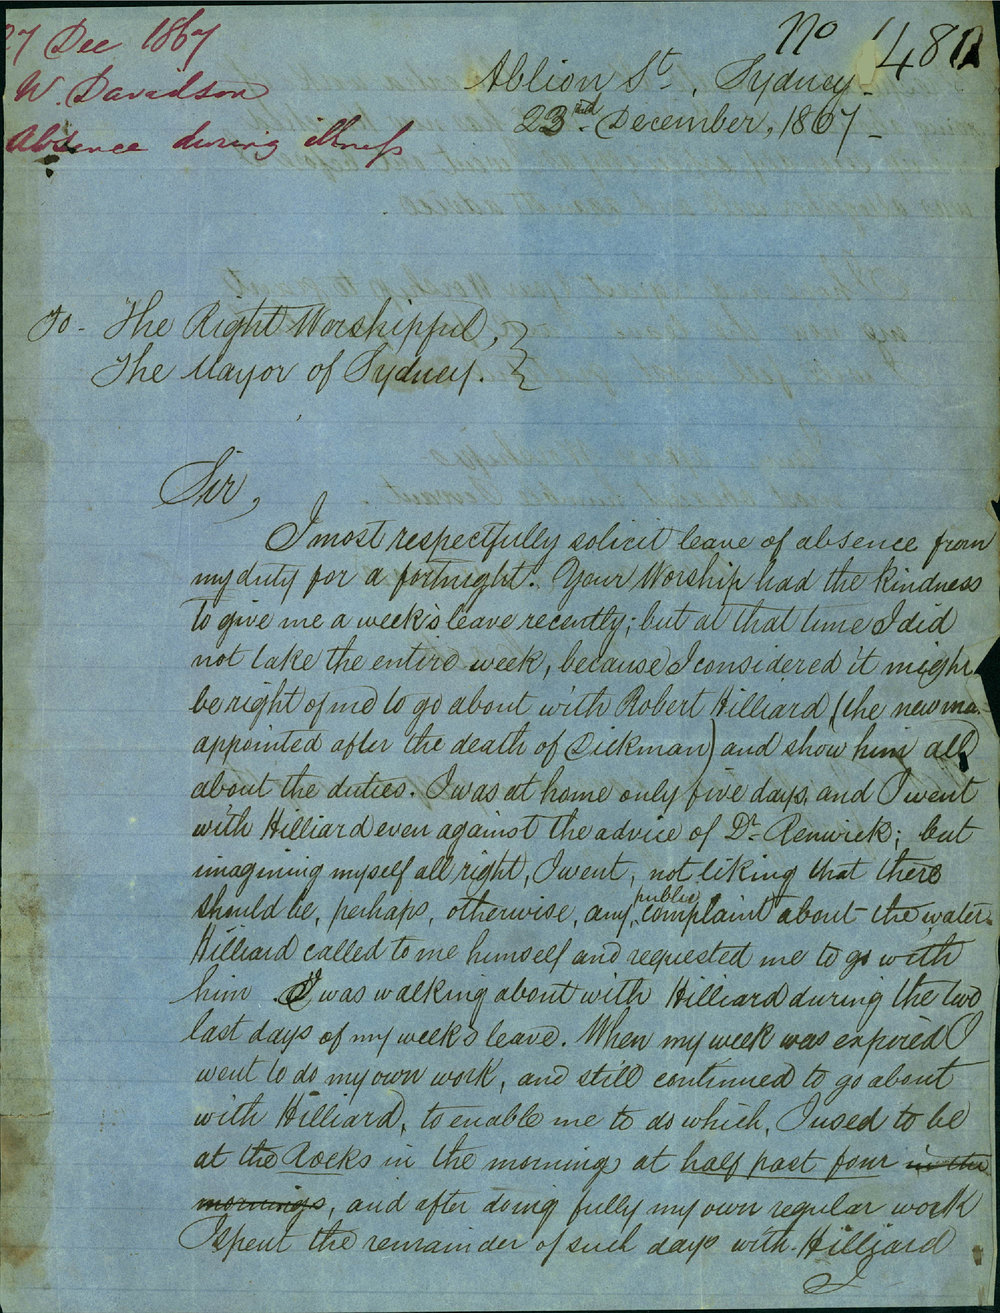 27 Dec 1867
W. Davidson
Absence during illness
No 1480
Ablion St., Sydney
23rd December, 1867
To - The Right Worshipful,
The Mayor of Sydney.
Sir,
I most respectfully solicit leave of absence from
my duty for a fortnight. Your Worship had the kindness
to give me a week's leave recently; but at that time I did
not take the entire week, because I considered it might
be right of me to go about with Robert Hilliard (the new ma
appointed after the death of Dickman) and show him all
about the duties. I was at home only five days, and I went
with Hilliard even against the advice of Dr. Renwick; but
imagining myself all right, I went, not liking that there
should be, perhaps, otherwise, any public complaint about the water.
Hilliard called to me himself and requested me to go with
him. I was walking about with Hilliard during the two
last days of my week's leave. When my week was expired I
went to do my own work, and still continued to go about
with Hilliard, to enable me to do which, I used to be
at the Rocks in the morning at half past four in the
mornings, and after doing fully my own regular work
I spent the remainder of such days with Hilliard
I